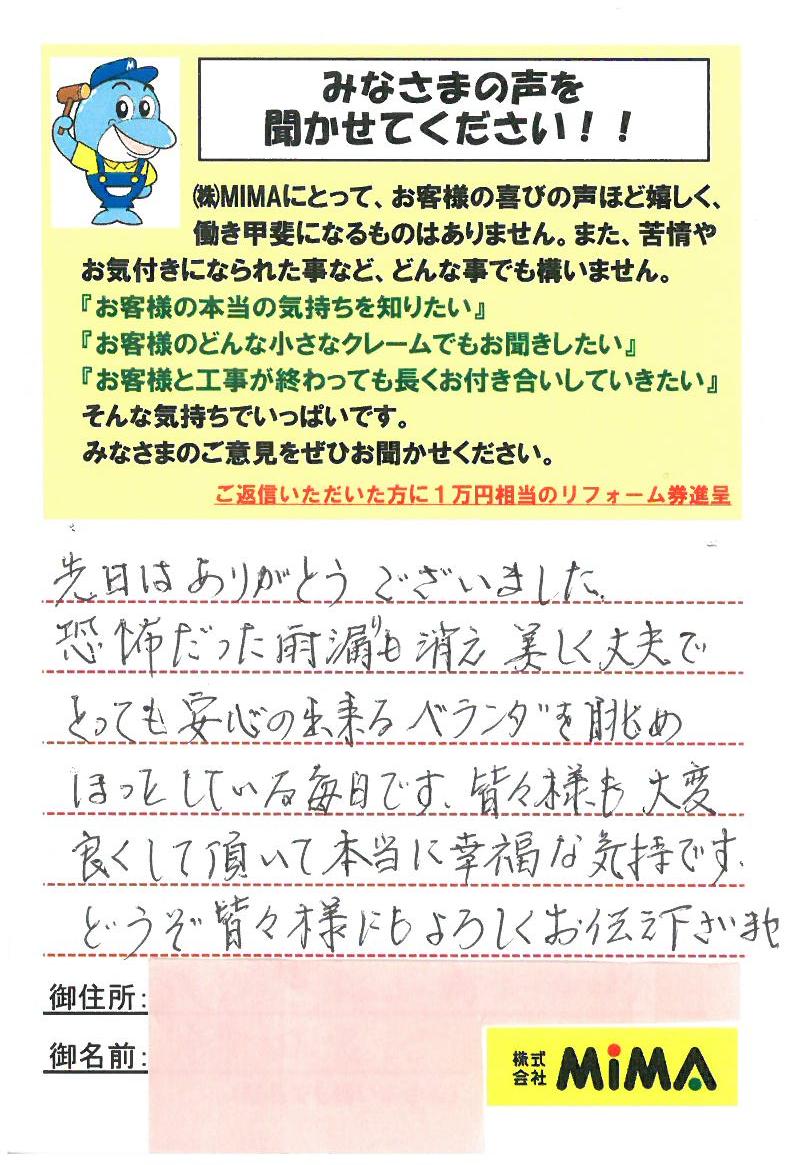 M
みなさまの声を
聞かせてください！！
㈱MIMAにとって、お客様の喜びの声ほど嬉しく、
働き甲斐になるものはありません。また、苦情や
お気付きになられた事など、どんな事でも構いません。
『お客様の本当の気持ちを知りたい』
『お客様のどんな小さなクレームでもお聞きしたい』
『お客様と工事が終わっても長くお付き合いしていきたい』
そんな気持ちでいっぱいです。
みなさまのご意見をぜひお聞かせください。
ご返信いただいた方に１万円相当のリフォーム券進呈
先日はありがとうございました。
恐怖だった雨漏りも消え美しく丈夫で
とっても安心の出来るベランダを眺め
ほっとしている毎日です。皆々様も大変
良くして頂いて本当に幸福な気持です。
どうぞ皆々様にもよろしくお伝え下さいませ
御住所：
御名前：
株式会社 MiMA